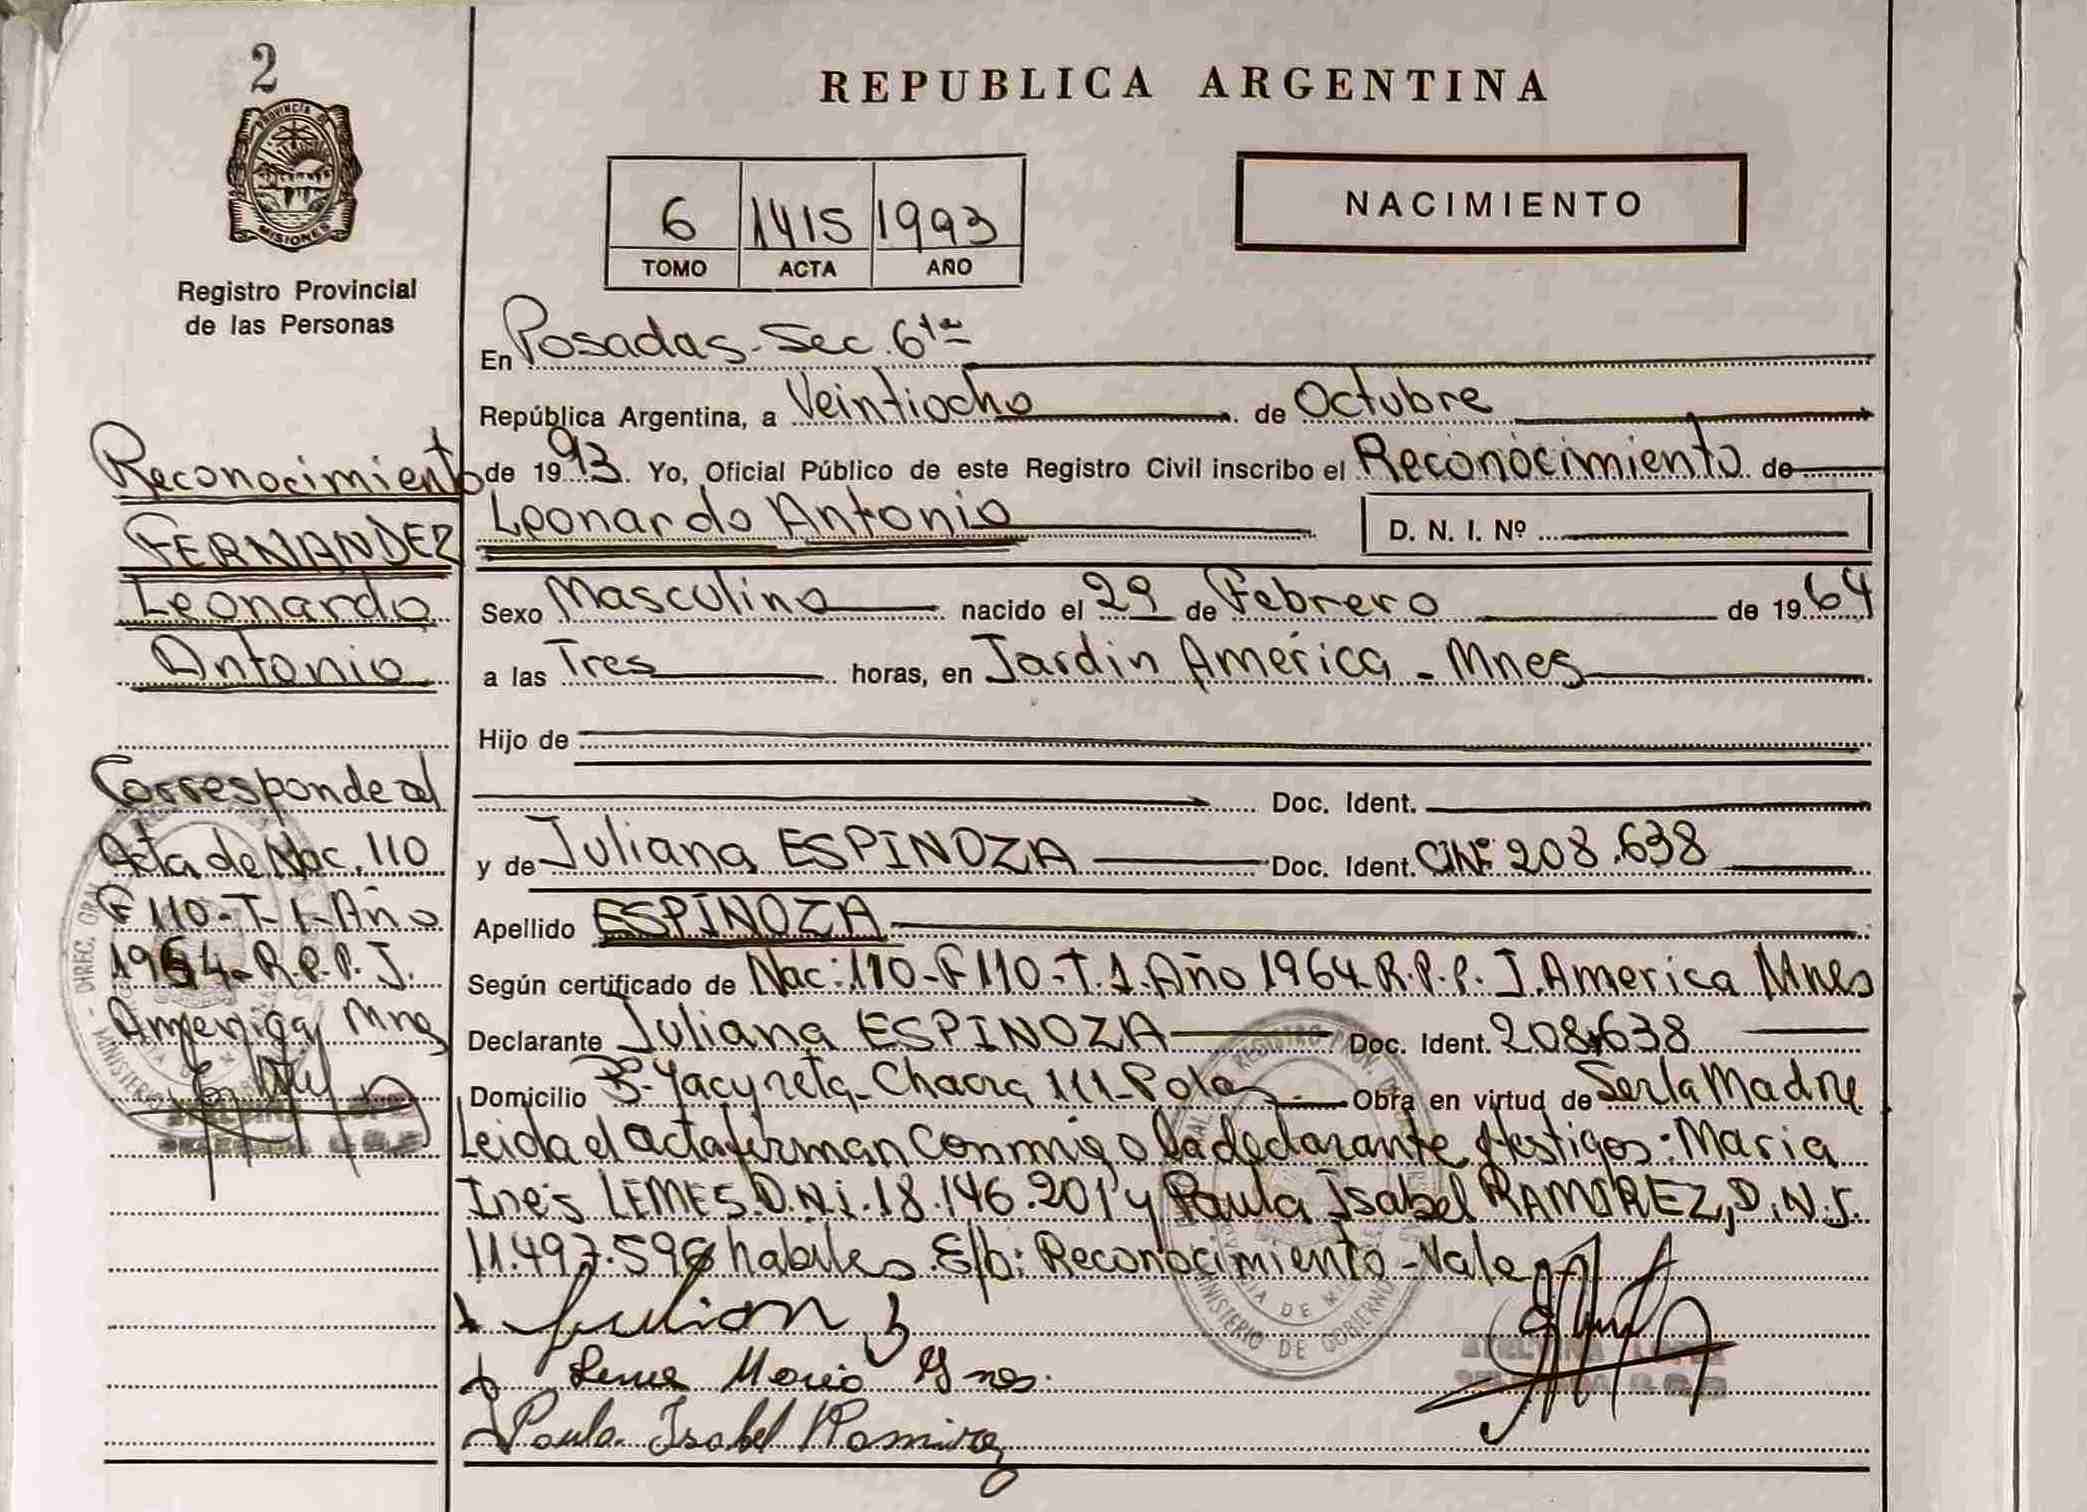 2
PROVINCIA DE
MISIONES
Registro Provincial
de las Personas
Reconocimiento
FERNANDEZ
Leonardo
Antonio
Corresponde al
Acta de Nac. 110
F 110-T-1-Año
1964-R.P.P.J.
America, Mnes
REPUBLICA ARGENTINA
6 1415 1993
TOMO ACTA AÑO
NACIMIENTO
En Posadas-Sec. 6ta
República Argentina, a Veintiocho de Octubre
de 1993. Yo, Oficial Público de este Registro Civil inscribo el Reconocimiento de
Leonardo Antonio D. N. I. Nº
Sexo Masculino nacido el 29 de Febrero de 1964
a las Tres horas, en Jardin América - Mnes
Hijo de
Doc. Ident.
y de Juliana ESPINOZA Doc. Ident. 208.638
Apellido ESPINOZA
Según certificado de Nac: 110-F 110-T.1.Año 1964 R.P.P. J. America Mnes
Declarante Juliana ESPINOZA Doc. Ident. 208.638
Domicilio Bº Yacyreta-Chacra 111-Pdas Obra en virtud de Ser la Madre
Leida el acta firman conmigo la declarante y testigos: Maria
Inés LEMES D.N.i. 18.146.201 y Paula Isabel RAMIREZ, D.N.I.
11.497.596 habiles. E/b: Reconocimiento-Vale
Maria Ynes
Paula Isabel Ramirez